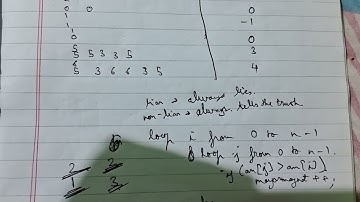 0 0 0
1 -1
1
0 0
5
5 5 3 3 5 3
6
5 3 6 6 3 5 4
liar → always lies.
non-liar → always tells the truth
loop i from 0 to n-1
loop j from 0 to n-1.
if (arr[j] > arr[i])
++;
2 3
1 3